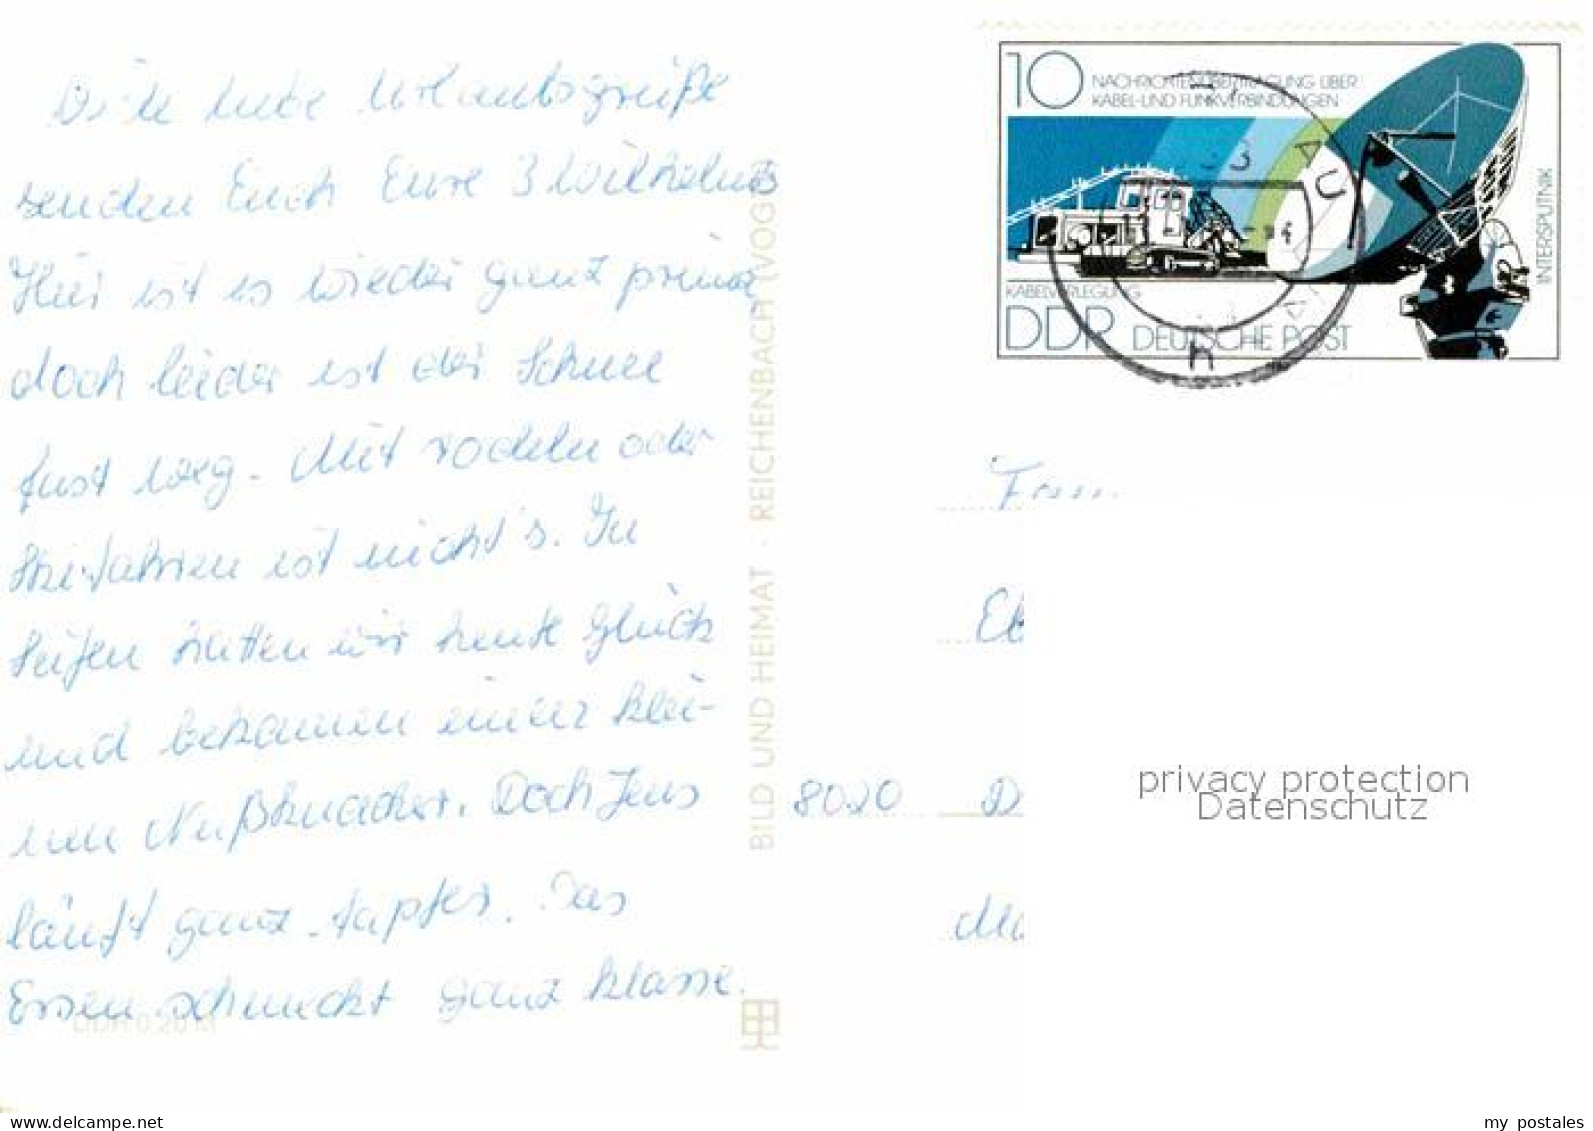 Viele liebe Urlaubsgrüße
senden Euch Eure 3 Wilhelms
Hier ist es wieder ganz prima
doch leider ist der Schnee
fast weg. Mit rodeln oder
Skifahren ist nicht's. In
Seifen hatten wir heute Glück
und bekamen einen klei-
nen Nußknacker. Doch Jens
läuft ganz tapfer. Das
Essen schmeckt ganz klasse.
DDR 0,20 M
BILD UND HEIMAT · REICHENBACH (VOGTL
10
NACHRICHTENÜBERTRAGUNG ÜBER
KABEL- UND FUNKVERBINDUNGEN
KABELVERLEGUNG
DDR DEUTSCHE POST
INTERSPUTNIK
Fam
8020 D
privacy protection
Datenschutz
my postales